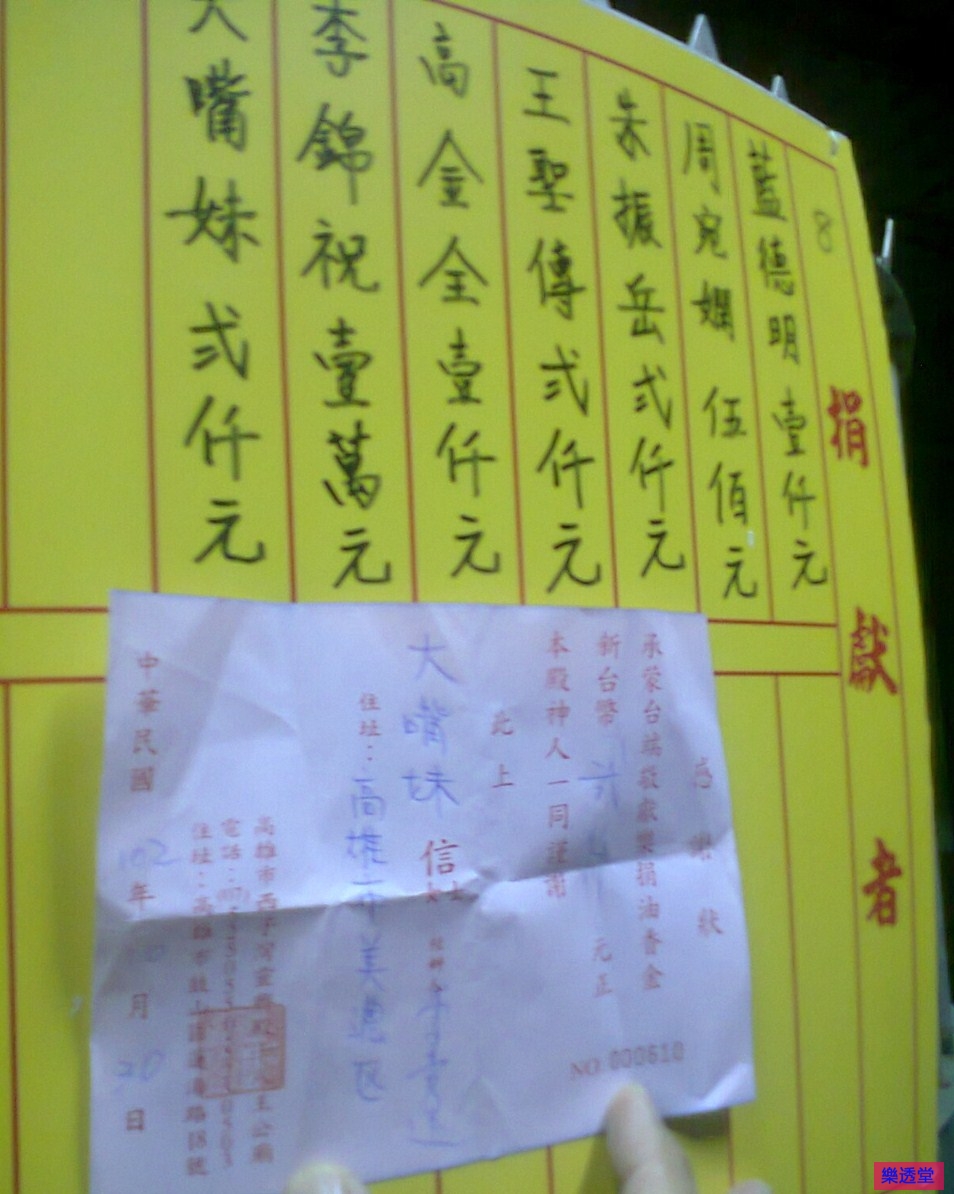 捐獻者
8
藍德明壹仟元
周宛嫻伍佰元
朱振岳弍仟元
王聖傳弍仟元
高金全壹仟元
李錦祝壹萬元
大嘴妹弍仟元
感謝狀
承蒙台端敬獻樂捐油香金
新台幣 元正
本殿神人一同謹謝
此上
大嘴妹 信士
住址：高雄市美濃區
高雄市西子灣靈 王公廟
電話：
住址：高雄市鼓山區蓮海路18號
中華民國 102 年 月 20 日
NO 000610
樂透堂